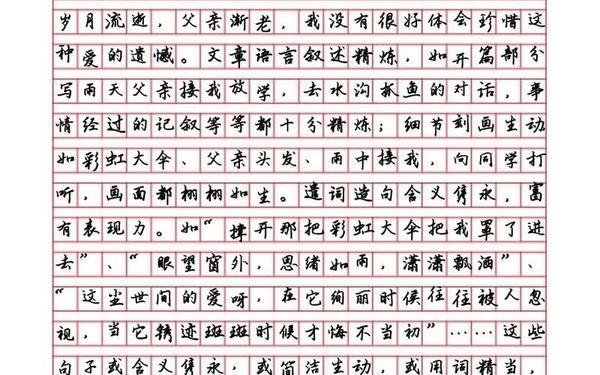 岁月流逝，父亲渐老，我没有很好体会珍惜这
种爱的遗憾。文章语言叙述精炼，如开篇部分
写雨天父亲接我放学，去水沟抓鱼的对话，事
情经过的记叙等等都十分精炼；细节刻画生动
如彩虹大伞、父亲头发、雨中接我，向同学打
听，画面都栩栩如生。遣词造句含义隽永，富
有表现力。如“撑开那把彩虹大伞把我罩了进
去”、“眼望窗外，思绪如雨，潇潇飘洒”、
“这尘世间的爱呀，在它绚丽时侯往往被人忽
视，当它锈迹斑斑时候才悔不当初”……这些
句子或含义隽永，或简洁生动，或用词精当，